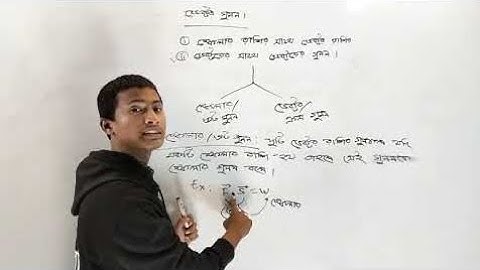 ভেক্টর গুনন।
① স্কেলার রাশির সাথে ভেক্টর রাশির
② ভেক্টরের সাথে ভেক্টরের গুনন।
স্কেলার/ ভেক্টর/
ডট গুনন ক্রস গুনন
স্কেলার/ডট গুনন: দুটি ভেক্টর রাশির গুনফল যদি
একটি স্কেলার রাশি হয় তাহলে সেই গুননকে
স্কেলার গুনন বলে।
Ex. = W
স্কেলার